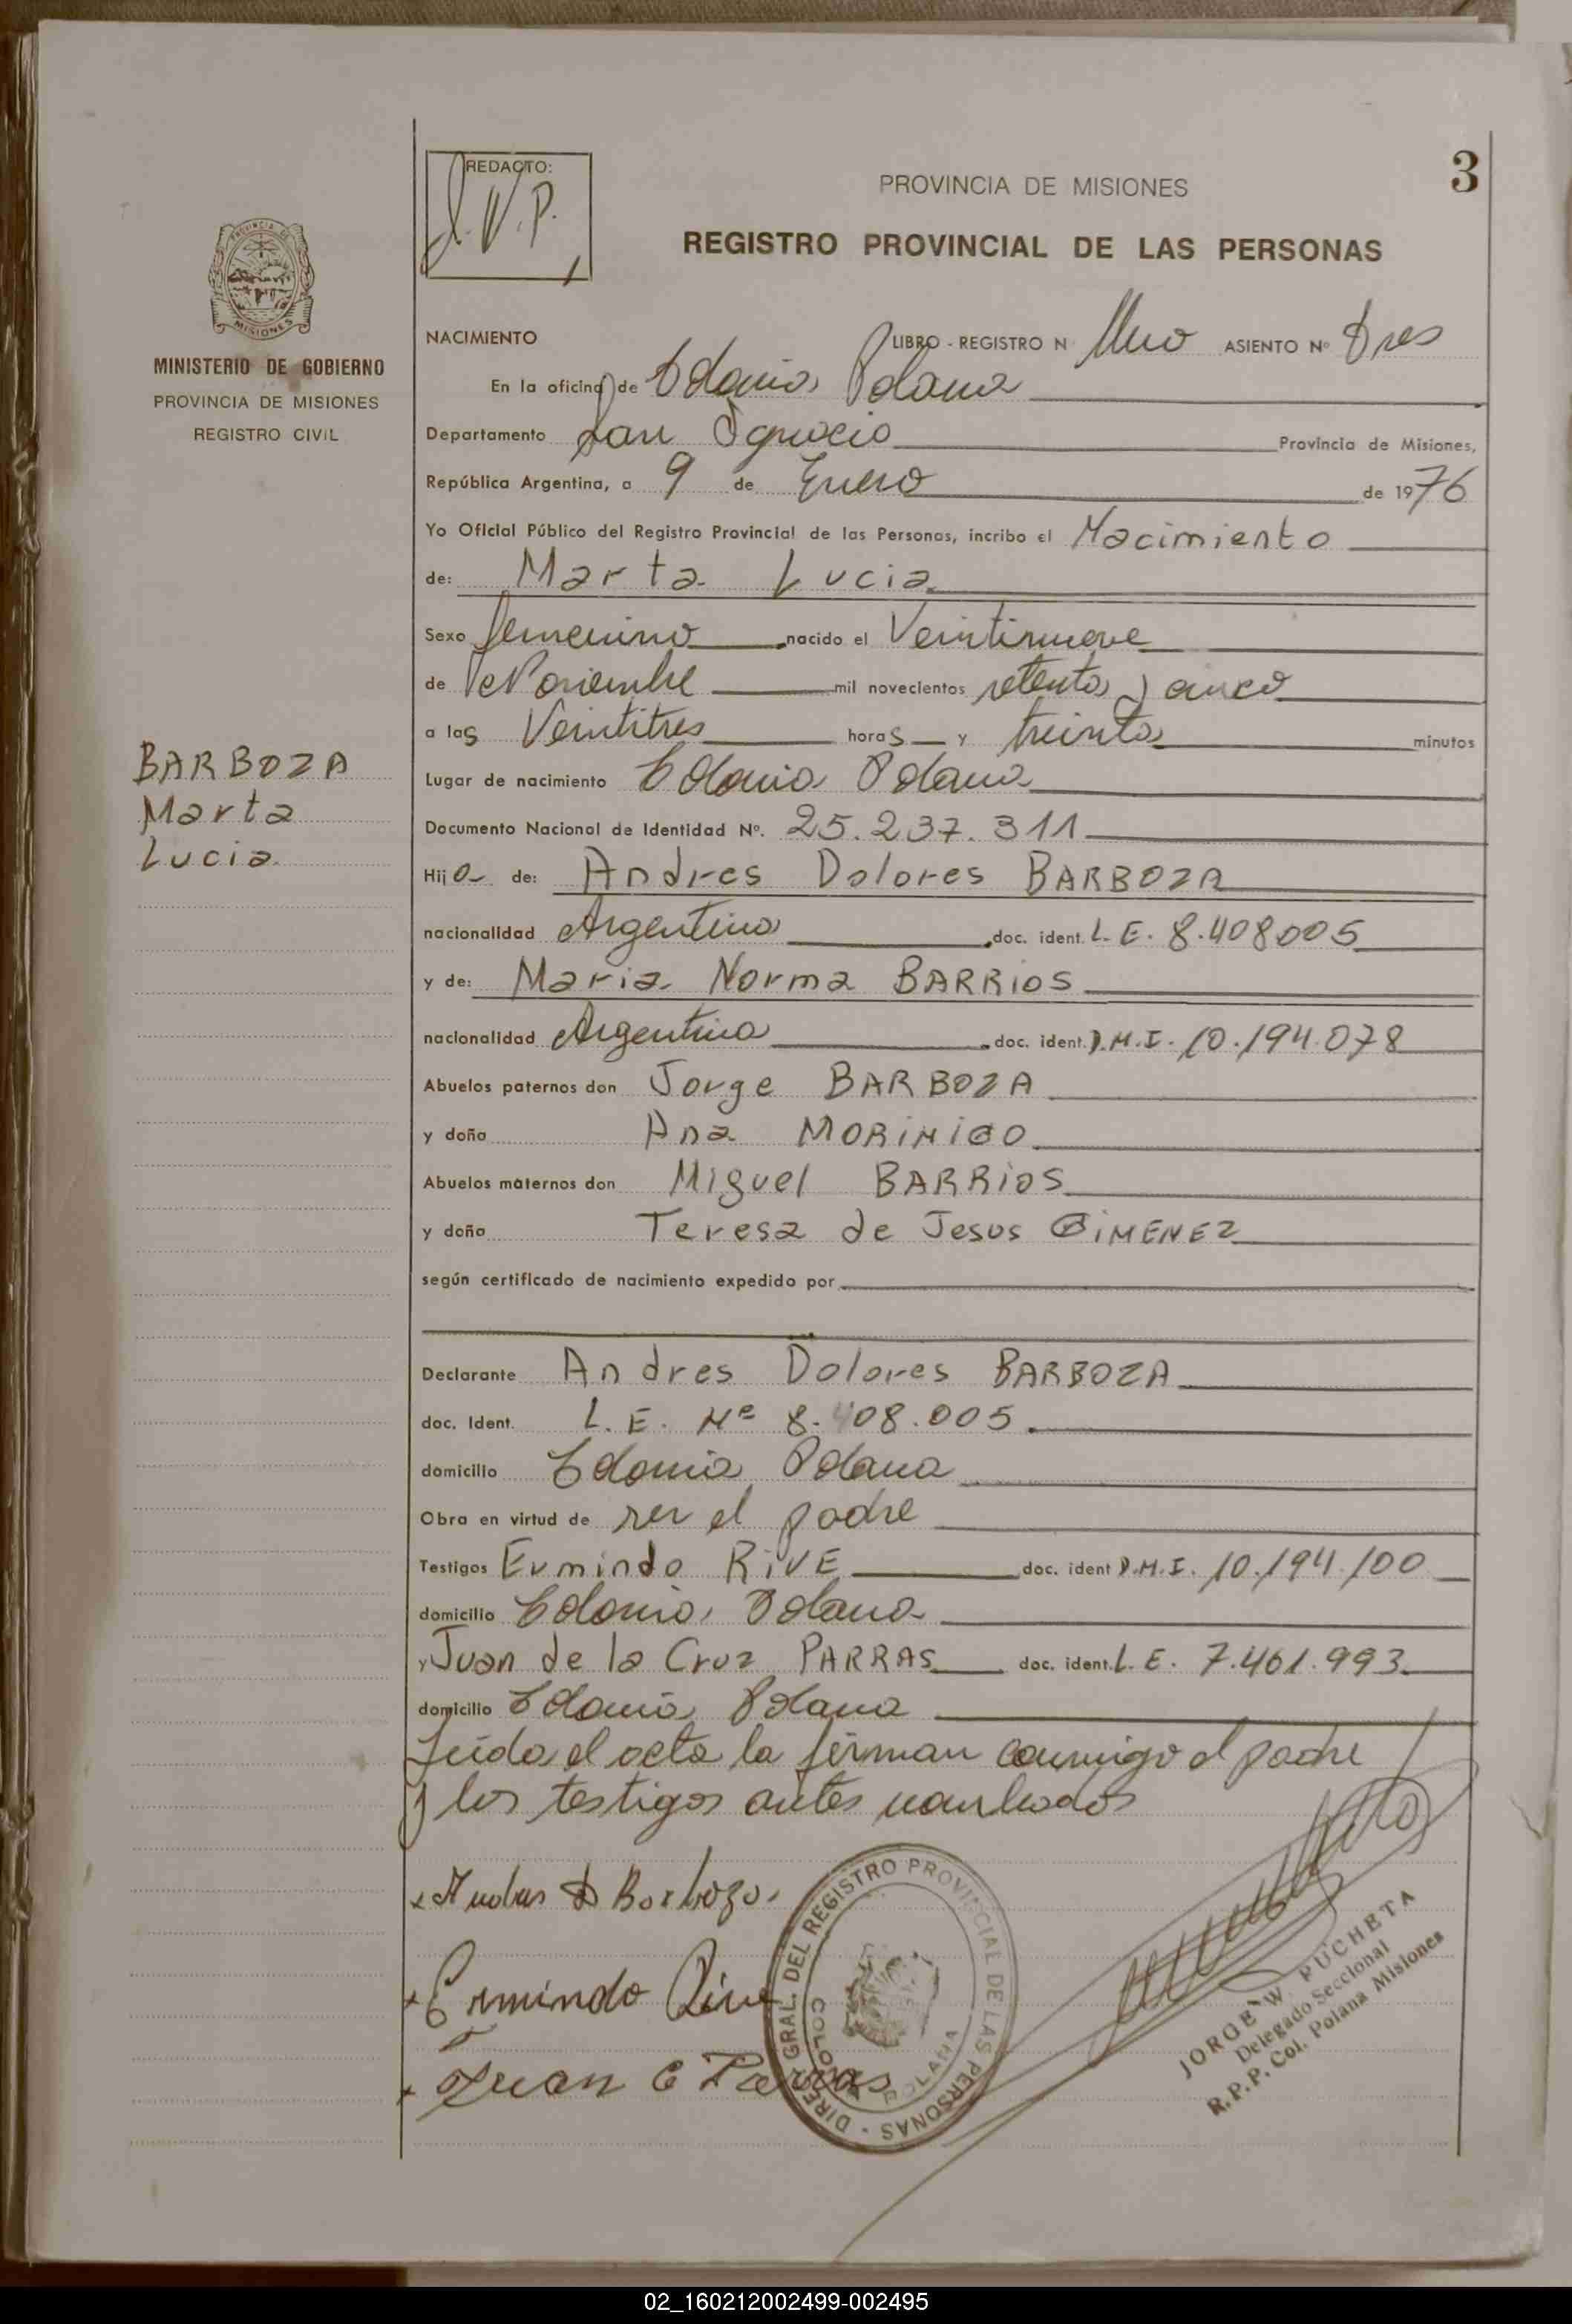 3
REDACTO:
J.W.P.
PROVINCIA DE MISIONES
REGISTRO PROVINCIAL DE LAS PERSONAS
PROVINCIA DE
MISIONES
MINISTERIO DE GOBIERNO
PROVINCIA DE MISIONES
REGISTRO CIVIL
NACIMIENTO LIBRO - REGISTRO N Uno ASIENTO Nº Tres
En la oficina de Colonia Polana
Departamento San Ignacio Provincia de Misiones,
República Argentina, a 9 de Enero de 1976
Yo Oficial Público del Registro Provincial de las Personas, incribo el Nacimiento
de: Marta Lucia
Sexo femenino nacido el Veintinueve
de Noviembre mil novecientos setenta y cinco
a las Veintitres horas y treinta minutos
BARBOZA
Marta
Lucia
Lugar de nacimiento Colonia Polana
Documento Nacional de Identidad Nº. 25.237.311
Hija de: Andres Dolores BARBOZA
nacionalidad Argentina doc. ident. L.E. 8.408005
y de: Maria Norma BARRIOS
nacionalidad Argentina doc. ident. D.N.I. 10.194.078
Abuelos paternos don Jorge BARBOZA
y doña Ana MORINIGO
Abuelos maternos don Miguel BARRIOS
y doña Teresa de Jesus GIMENEZ
según certificado de nacimiento expedido por
Declarante Andres Dolores BARBOZA
doc. Ident. L.E. Nº 8.408.005
domicilio Colonia Polana
Obra en virtud de ser el padre
Testigos Ermindo RIVE doc. ident D.N.I. 10.194.100
domicilio Colonia Polana
y Juan de la Cruz PARRAS doc. ident. L.E. 7.461.993
domicilio Colonia Polana
Leida el acta la firman conmigo el padre
y los testigos antes nombrados
Andres D Barboza
Ermindo Rive
Juan C Parras
DIRE GRAL. DEL REGISTRO PROVINCIAL DE LAS PERSONAS
COLONIA POLANA
JORGE W. PUCHETA
Delegado Seccional
R.P.P. Col. Polana Misiones
02_160212002499-002495